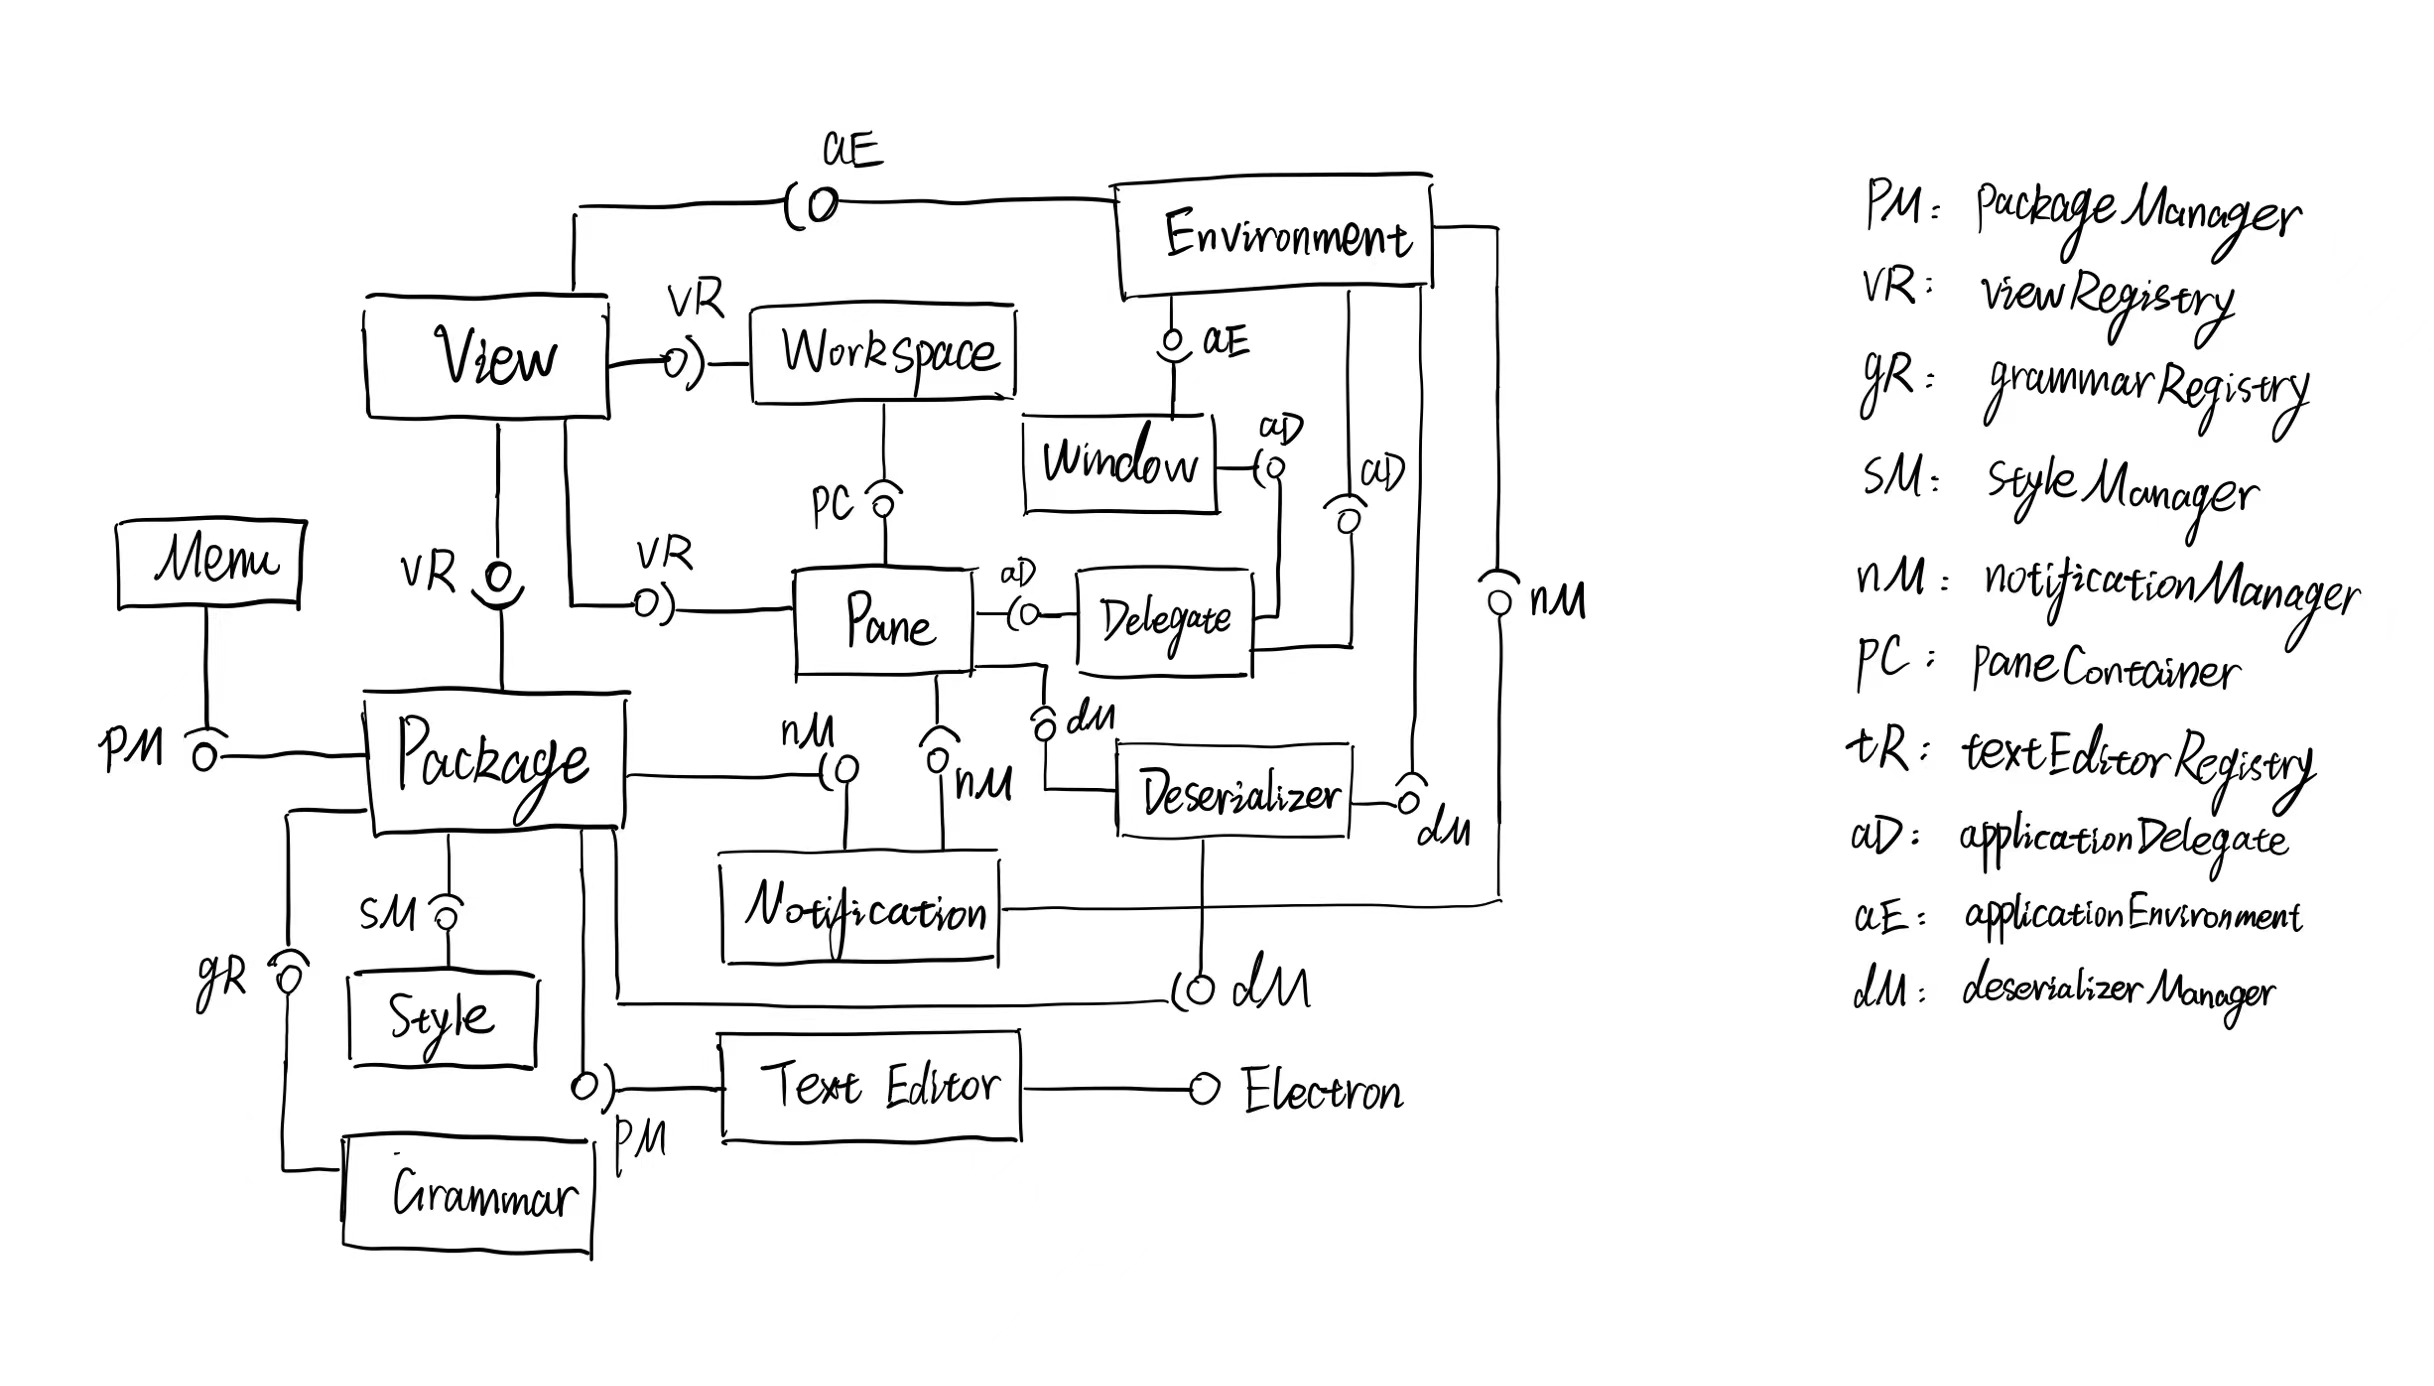 aE
Environment
vR
View
Workspace
aE
Window
aD
aD
PC
Menu
vR
vR
aD
Pane
Delegate
nM
PM
Package
nM
nM
dM
Deserializer
dM
sM
Notification
gR
dM
Style
Text Editor
Electron
PM
Grammar
PM: PackageManager
vR: viewRegistry
gR: grammarRegistry
sM: styleManager
nM: notificationManager
PC: paneContainer
tR: textEditorRegistry
aD: applicationDelegate
aE: applicationEnvironment
dM: deserializerManager